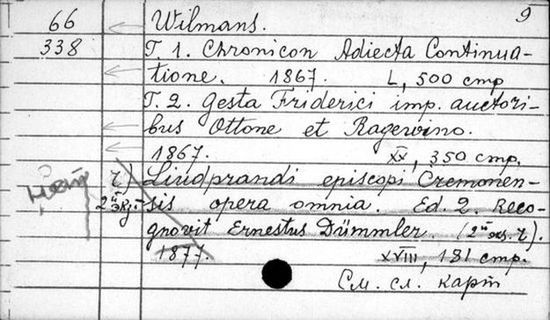 66 Wilmans. 9
338 T 1. Chronicon Adiecta Continua-
tione. 1867. L, 500 стр
T. 2. Gesta Friderici imp. auctori-
bus Ottone et Ragewino.
1867. XX, 350 стр.
r) Liudprandi episcopi Cremonen-
2й экз- sis opera omnia. Ed. 2. Reco-
gnovit Ernestus Dümmler. (2й экз. r).
1877. XVIII, 181 стр.
См. сл. карт